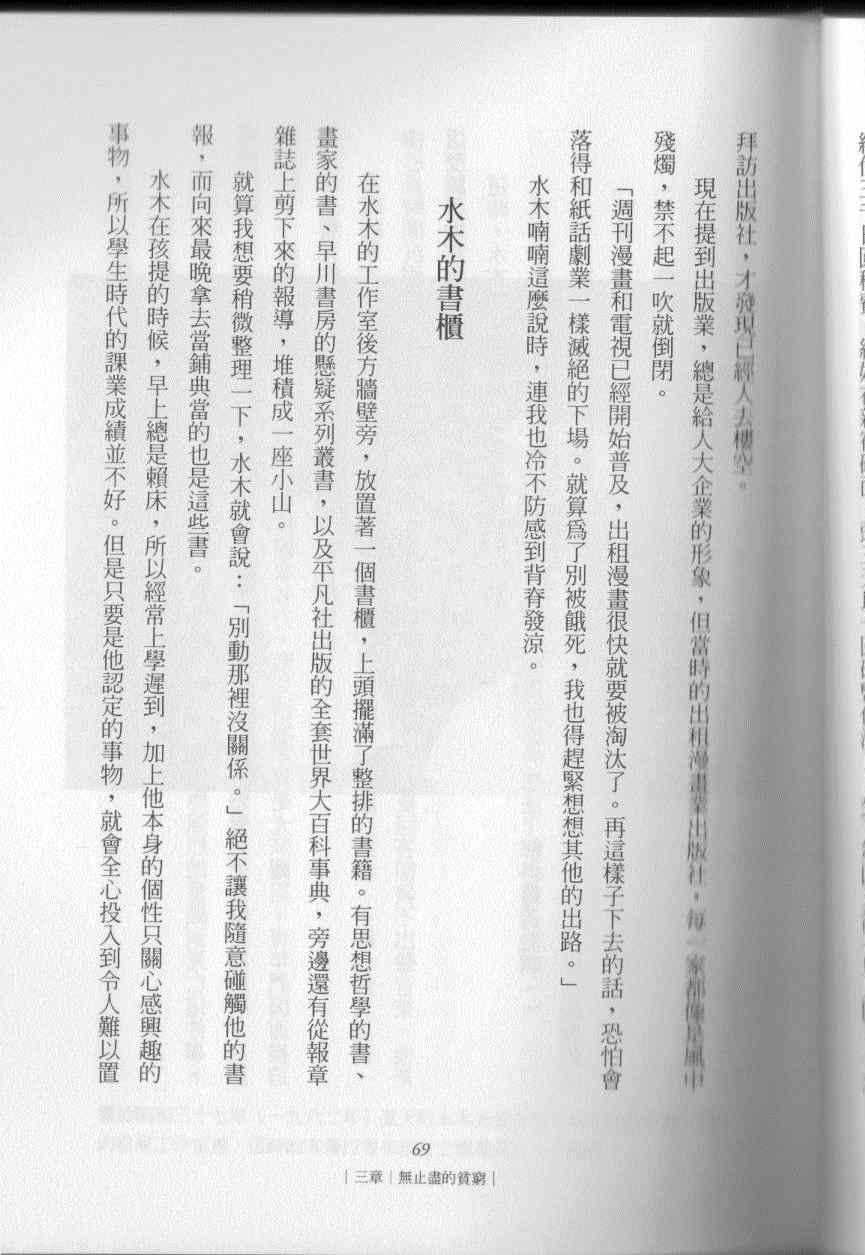 拜訪出版社，才發現已經人去樓空。
現在提到出版業，總是給人大企業的形象，但當時的出租漫畫業出版社，每一家都像是風中
殘燭，禁不起一吹就倒閉。
「週刊漫畫和電視已經開始普及，出租漫畫很快就要被淘汰了。再這樣子下去的話，恐怕會
落得和紙話劇業一樣滅絕的下場。就算為了別被餓死，我也得趕緊想想其他的出路。」
水木喃喃這麼說時，連我也冷不防感到背脊發涼。
水木的書櫃
在水木的工作室後方牆壁旁，放置著一個書櫃，上頭擺滿了整排的書籍。有思想哲學的書、
畫家的書、早川書房的懸疑系列叢書，以及平凡社出版的全套世界大百科事典，旁邊還有從報章
雜誌上剪下來的報導，堆積成一座小山。
就算我想要稍微整理一下，水木就會說：「別動那裡沒關係。」絕不讓我隨意碰觸他的書
報，而向來最晚拿去當鋪典當的也是這些書。
水木在孩提的時候，早上總是賴床，所以經常上學遲到，加上他本身的個性只關心感興趣的
事物，所以學生時代的課業成績並不好。但是只要是他認定的事物，就會全心投入到令人難以置
69
｜三章｜無止盡的貧窮｜